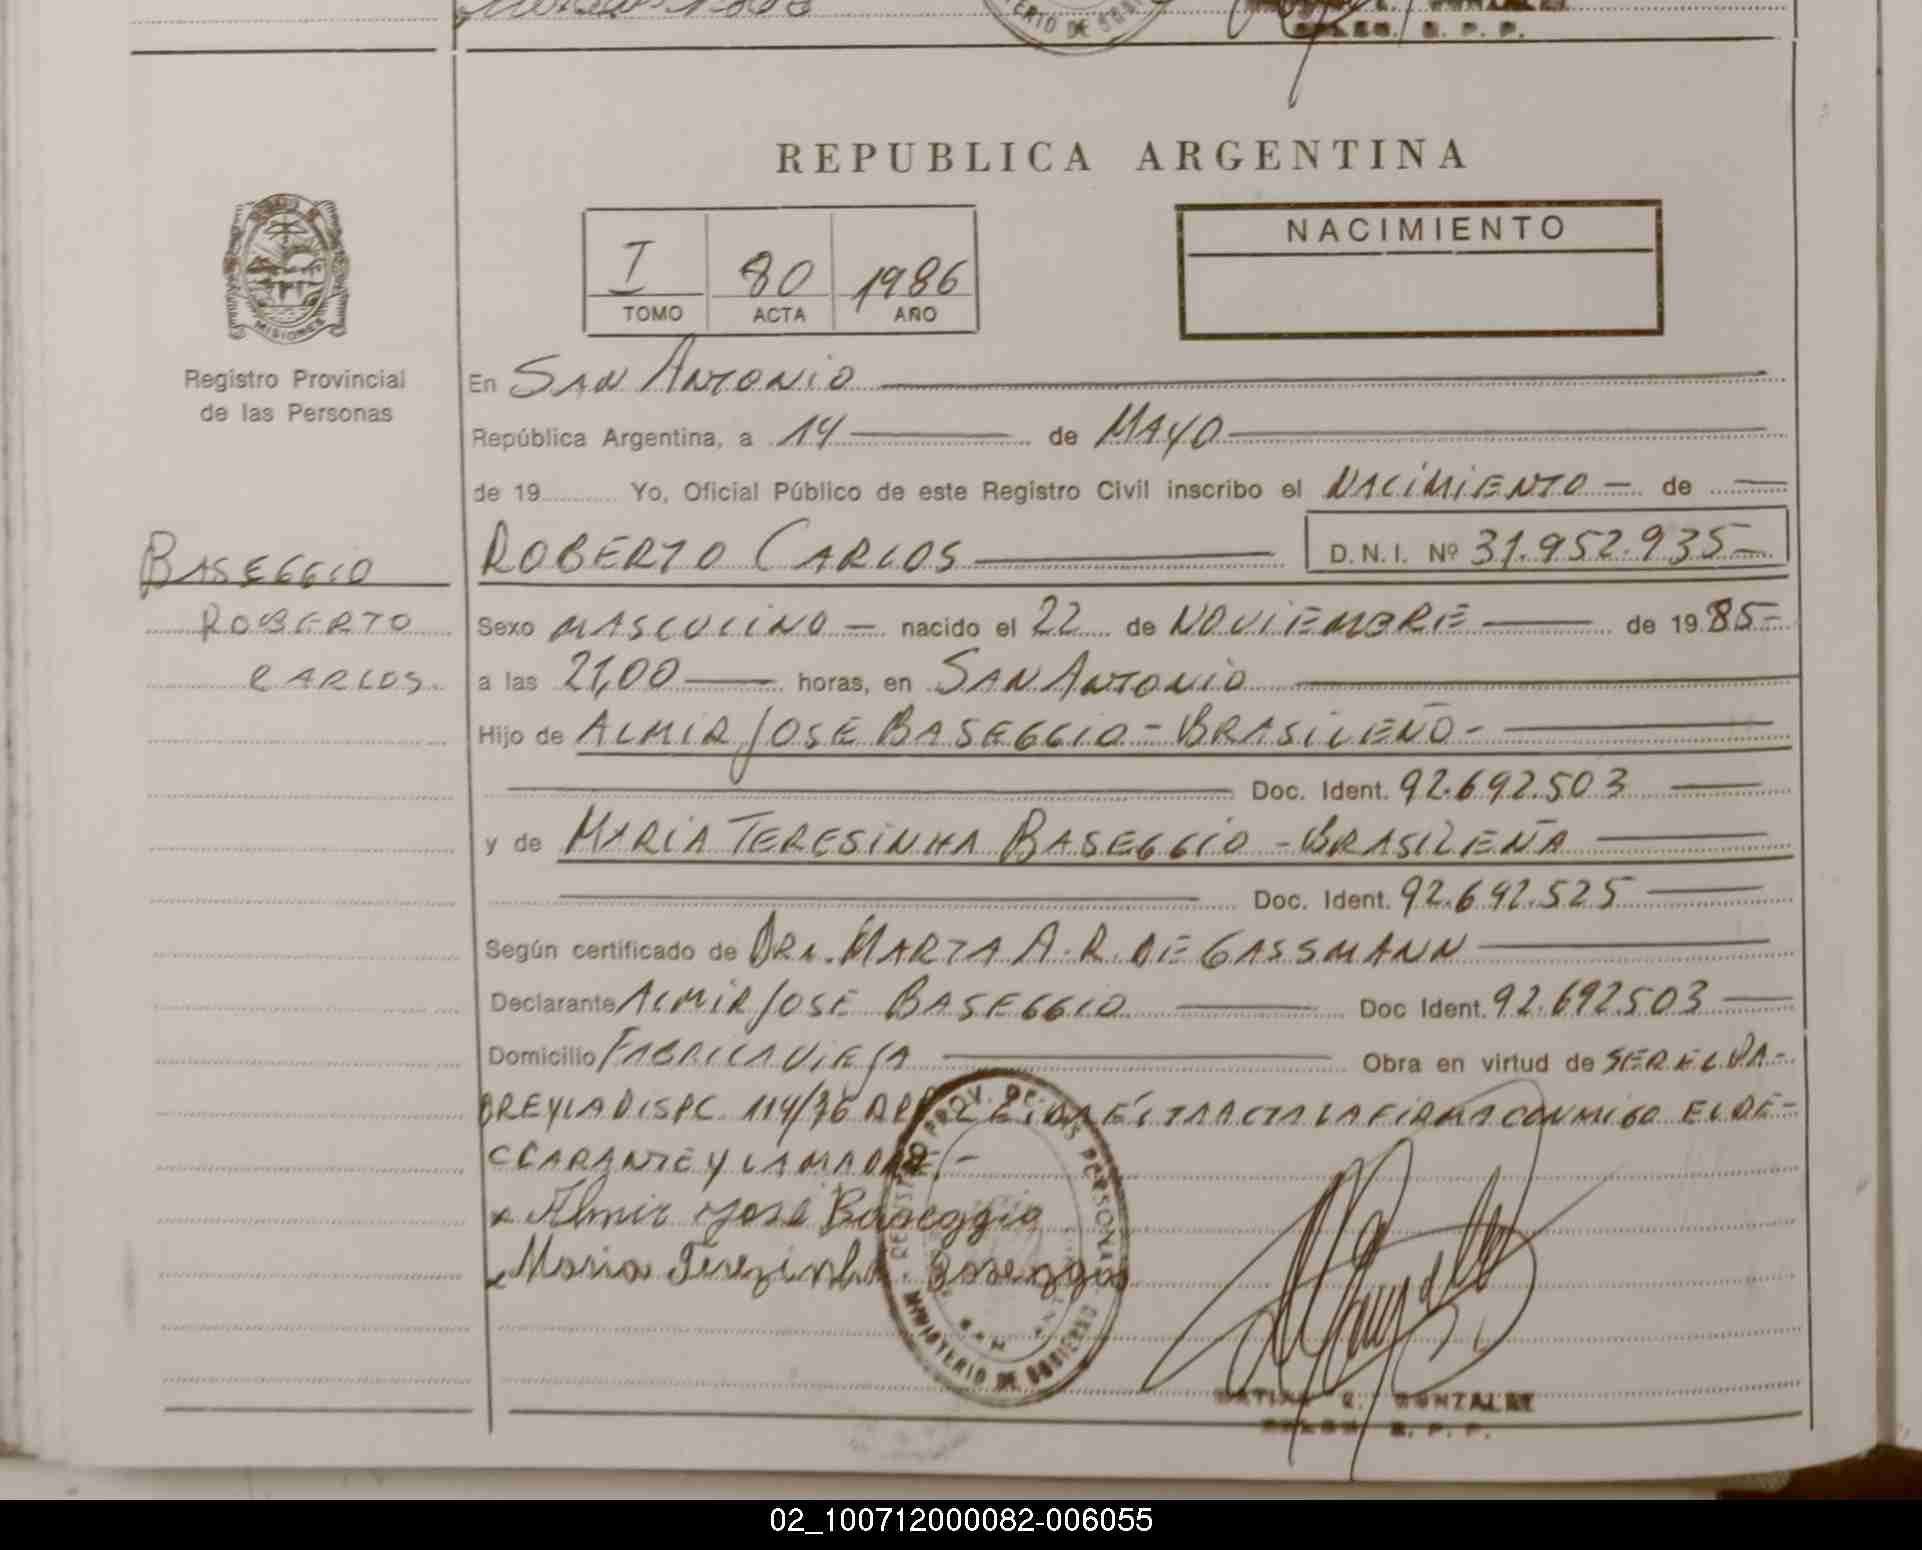 REPUBLICA ARGENTINA
MISIONES
Registro Provincial
de las Personas
I 80 1986
TOMO ACTA AÑO
NACIMIENTO
En SAN ANTONIO
República Argentina, a 14 de MAYO
de 19 Yo, Oficial Público de este Registro Civil inscribo el NACIMIENTO de
BASEGGIO
ROBERTO
CARLOS
ROBERTO CARLOS D.N.I. Nº 31.952.935
Sexo MASCULINO nacido el 22 de NOVIEMBRE de 1985
a las 21,00 horas, en SAN ANTONIO
Hijo de ALMIR JOSE BASEGGIO - BRASILEÑO -
Doc. Ident. 92.692.503
y de MARIA TERESINHA BASEGGIO - BRASILEÑA
Doc. Ident. 92.692.525
Según certificado de DRA. MARTA A. R. DE GASSMANN
Declarante ALMIR JOSE BASEGGIO Doc Ident. 92.692.503
Domicilio FABRICA VIEJA Obra en virtud de SER EL PA-
DRE Y LA DISPC. 114/76 LEIDA ÉSTA ACTA LA FIRMA CONMIGO EL DE-
CLARANTE Y LA MADRE. -
x Almir José Baseggio
x Maria Terezinha Baseggio
REGISTRO PROV. DE LAS PERSONAS
MINISTERIO DE GOBIERNO
C. GONZALEZ
R. P. P.
02_100712000082-006055